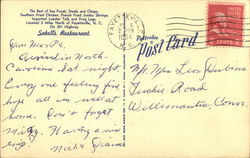 The Best of Sea Foods, Steaks and Chops,
Southern Fried Chicken, French Fried Jumbo Shrimps
Imported Lobster Tails and Frog Legs.
Located 2 Miles North of Fayetteville, N. C.
On 301 Highway
Sakell's Restaurant
Post Card
FAYETTEVILLE
PM
1954
N.C.
Dear Ma & Pa.
Arrived in North
Carolina Sat. night
Every one feeling fine
hope all is well at
home. Don't forget
Mitzy. Having a nice
trip.
Mr. Mrs Leo
Tuckie Road
Willimantic Conn.